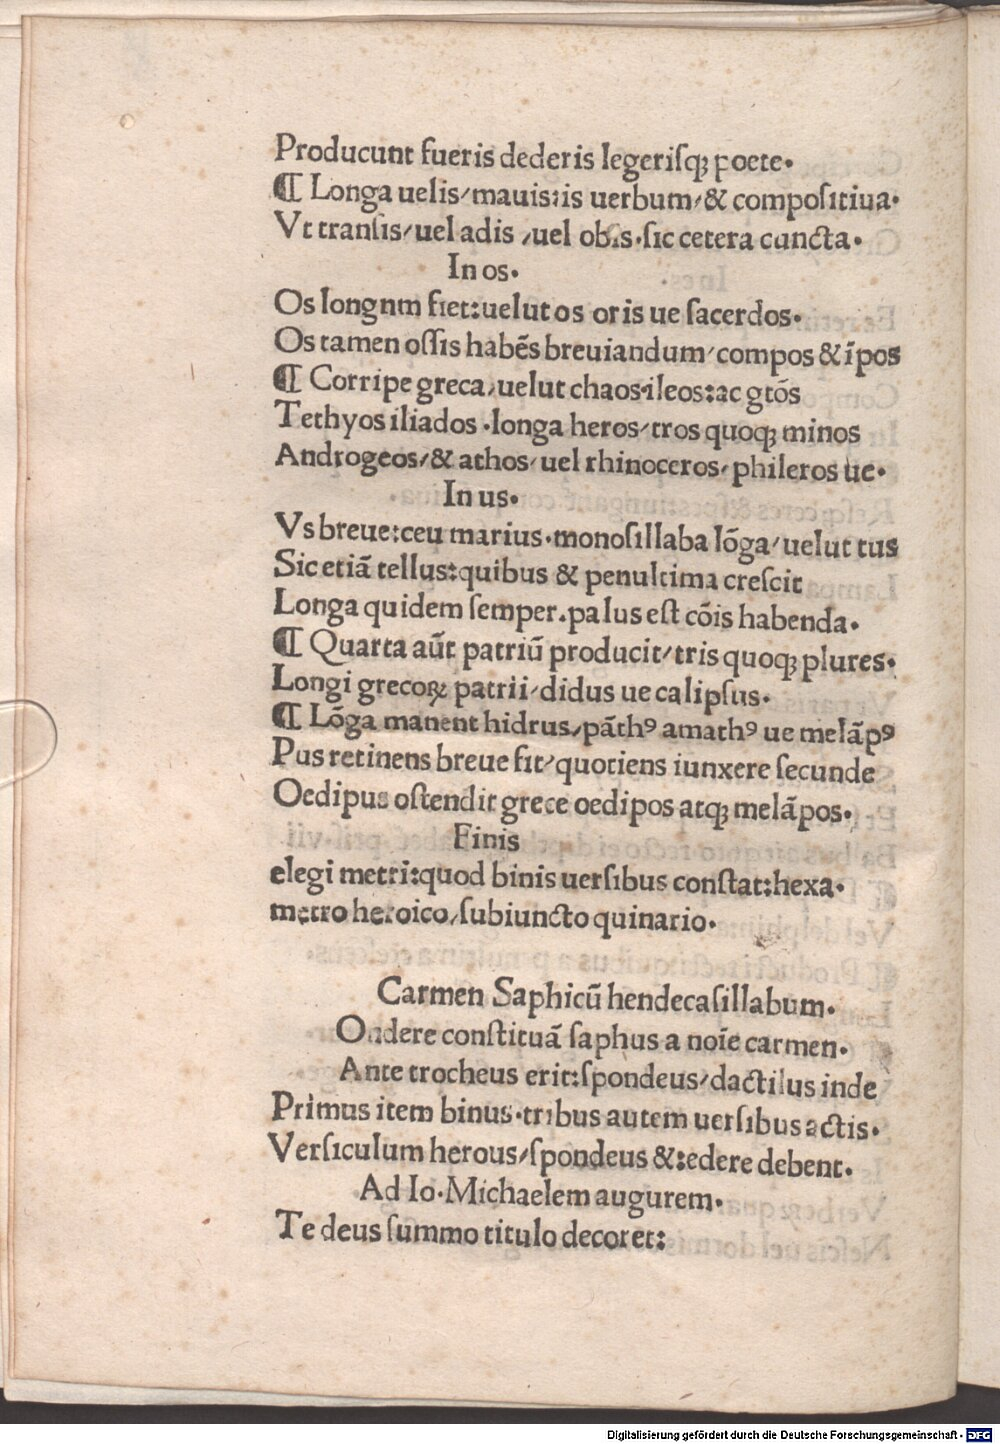 Producunt fueris dederis legeriſqꝫ poete.
¶ Longa uelis/mauis:is uerbum/& compoſitiua.
Vt tranſis/uel adis /uel obis.ſic cetera cuncta.
In os.
Os longnm fiet:uelut os oris ue ſacerdos.
Os tamen oſſis habēs breuiandum/compos & īpos
¶ Corripe greca/uelut chaos.ileos:ac gtōs
Tethyos iliados .longa heros/tros quoqꝫ minos
Androgeos/& athos/uel rhinoceros/phileros ue.
In us.
Vs breue:ceu marius.monoſillaba lōga/uelut tus
Sic etiā tellus:quibus & penultima creſcit
Longa quidem ſemper.palus eſt cōis habenda.
¶ Quarta aūt patriū producit/tris quoqꝫ plures.
Longi grecoꝝ patrii/didus ue calipſus.
¶ Lōga manent hidrus/pāthꝰ amathꝰ ue melāpꝰ
Pus retinens breue fit/quotiens iunxere ſecunde
Oedipus oſtendit grece oedipos atqꝫ melāpos.
Finis
elegi metri:quod binis uerſibus conſtat:hexa.
metro heroico/ſubiuncto quinario.
Carmen Saphicū hendecaſillabum.
Ondere conſtituā ſaphus a noīe carmen.
Ante trocheus erit:ſpondeus/dactilus inde
Primus item binus.tribus autem uerſibus actis.
Verſiculum herous/ſpondeus &:edere debent.
Ad Io.Michaelem augurem.
Te deus ſummo titulo decoret:
Digitalisierung gefördert durch die Deutsche Forschungsgemeinschaft - DFG